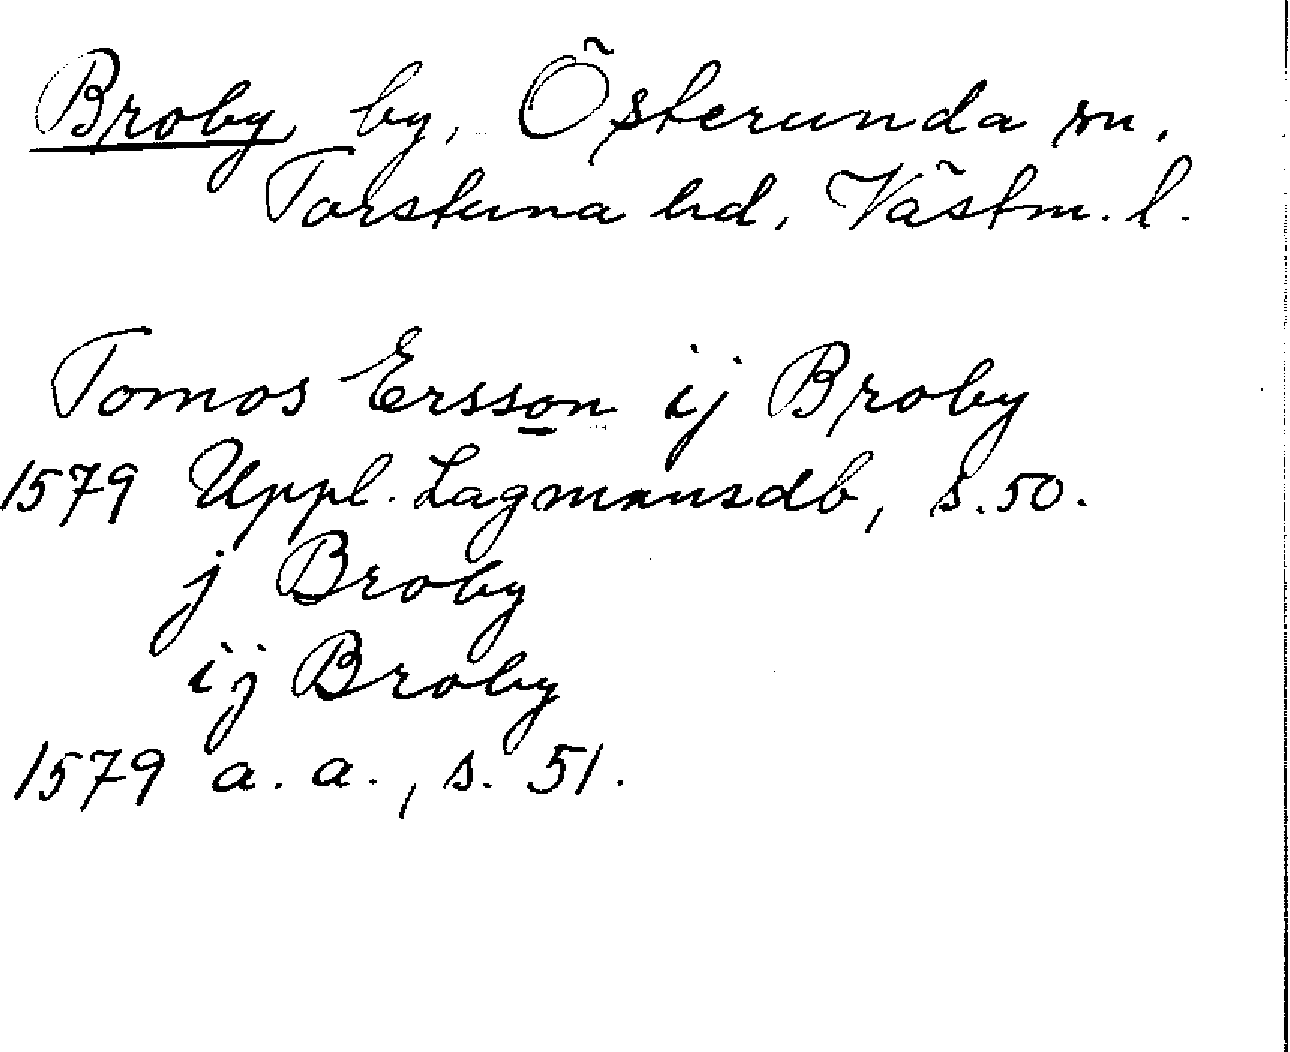 Broby, by, Österunda sn,
Torstuna hd, Västm. l.
Tomos Ersson ij Broby
1579 Uppl. Lagmansdb, s. 50.
j Broby
ij Broby
1579 a. a., s. 51.